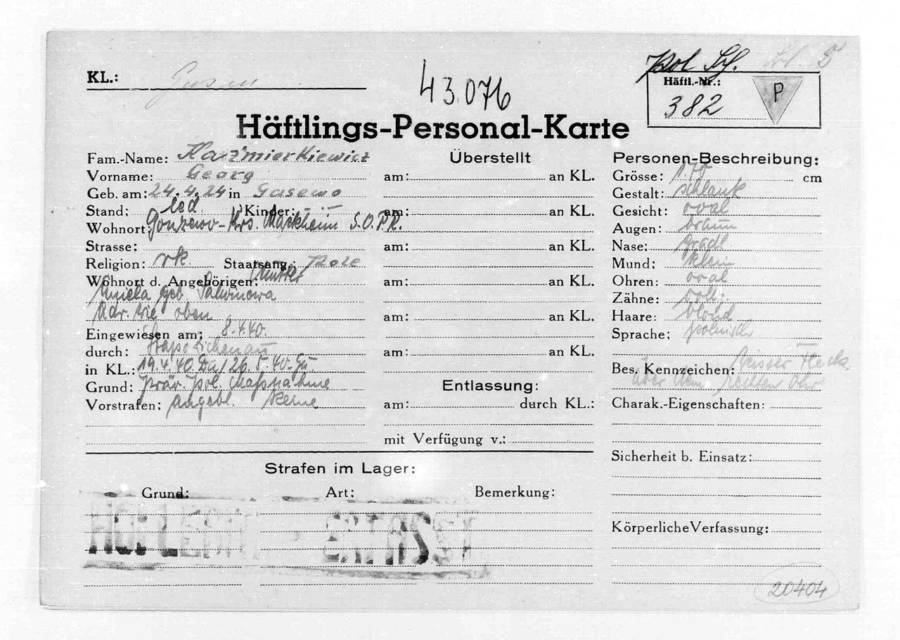 KL.: Gusen
43076
Pol Sch.
Häftl.-Nr.:
382
P
Häftlings-Personal-Karte
Fam.-Name: Kazmierkiewicz
Vorname: Georg
Geb. am: 24.4.24 in Gasewo
Stand: led Kinder:
Wohnort:
Strasse:
Religion: rk Staatsang.: Pole
Wohnort d. Angehörigen: Mutter
Aniela geb.
Adr. wie oben
Eingewiesen am: 8.4.40.
durch: Stapo Zichenau
in KL.: 19.4.40. Da/26.5.40-Gu
Grund: Maßnahme
Vorstrafen: angebl. keine
Überstellt
am: an KL.
am: an KL.
am: an KL.
am: an KL.
am: an KL.
am: an KL.
Entlassung:
am: durch KL.:
mit Verfügung v.:
Personen-Beschreibung:
Grösse: 170 cm
Gestalt: schlank
Gesicht: oval
Augen: braun
Nase: gradl
Mund: klein
Ohren: oval
Zähne:
Haare: blond
Sprache: polnisch
Bes. Kennzeichen: weisser Fleck
über dem rechten Ohr
Charak.-Eigenschaften:
Sicherheit b. Einsatz:
Körperliche Verfassung:
Strafen im Lager:
Grund: Art: Bemerkung:
HOLLERITH
20404